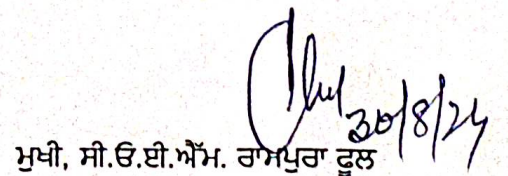 30/8/24
ਮੁਖੀ, ਸੀ.ਓ.ਈ.ਐੱਮ. ਰਾਮਪੁਰਾ ਫੂਲ